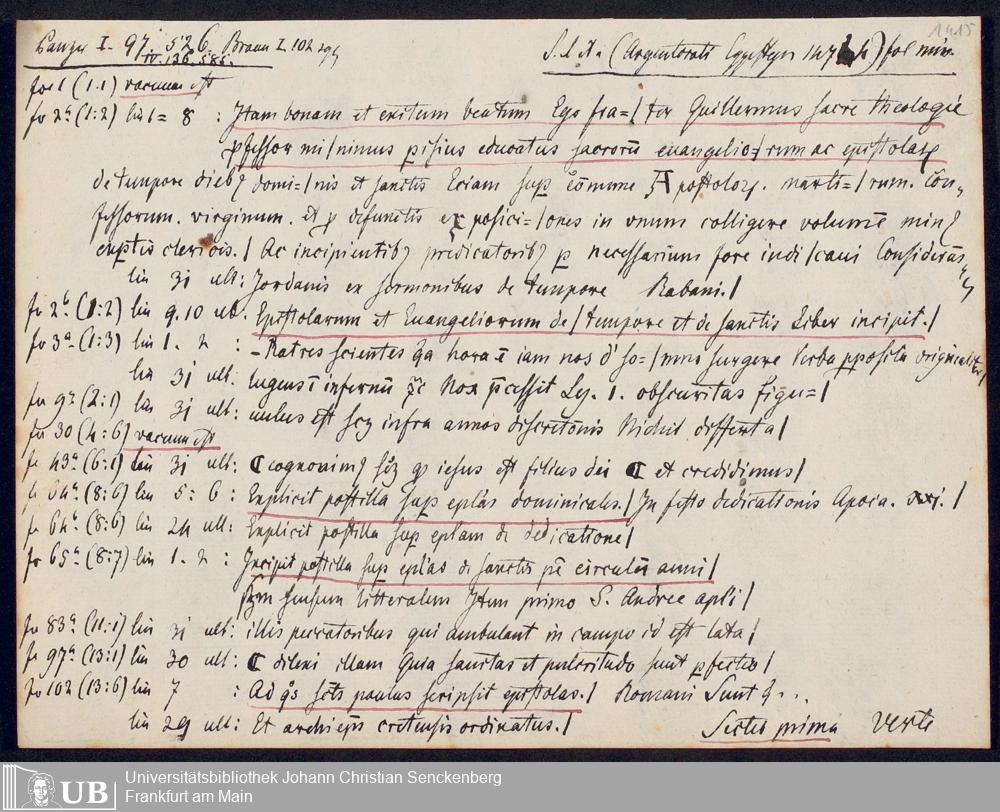 1415
Panzer I. 97. 526. Braun I. 102
IV. 136. 585.
S. l. & a. (Argentorati Eggesteyn 147) fol min
fol 1 (1:1) vacuum est
fo 2a (1:2) lin 1= 8 : Itam bonam et exitum beatum Ego fra=/ter Guillermus sacre theologie
pfessor mi/nimus pisius educatus sacrorū euangelio=/rum ac epistolarꝝ
de tempore dieb9 domi=/nis et sanctis Eciam sup cōmune Apostoloꝝ. marti=/rum. cōn
fessorum. virginum. et p defunctis exposici=/ones in vnum colligere volumē min9
cuptis clericis./ Ac incipientib9 predicatorib9 p necessarium fore indi/caui Considerās
lin 31 ult: Jordanis ex sermonibus de tempore Rabani./
fo 2b (1:2) lin 9.10 ult. Epistolarum et Euangeliorum de/tempore et de sanctis Liber incipit./
fo 3a (1:3) lin 1. 2 : -Ratres scientes q̄a hora ē iam nos d' so=/mno surgere Verba pposita originaliter/
lin 31 ult. lugens ī infernū Nox p̄cessit Ly. 1. obscuritas figu=/
fo 9a (2:1) lin 31 ult: nulus est scz infra annos discretōnis Nichil differt a/
fo 30 (4:6) vacuum est
fo 43a (6:1) lin 31 ult: C cognouim9 scz qp iesus est filius dei C et credidimus/
fo 64b (8:6) lin 5: 6 : Explicit postilla sup epl'as dominicales./ In festo dedicationis Apoca. xxi. /
fo 64b (8:6) lin 24 ult: Explicit postilla sup eplam de dedicatione/
fo 65a (8:7) lin 1. 2 : Incipit postilla sup epl'as de sanctis pē circulū anni/
scdm sensum litteralem Item primo S. Andree apl'i/
fo 83a (11:1) lin 31 ult: illis peccatoribus qui ambulant in campo id est lata/
fo 97a (13:1) lin 30 ult: C dilexi illam Quia sanctitas et pulcritudo sunt pfectio/
fo 102 (13:6) lin 7 : Ad q̄s sc̄ts paulus scripsit epistolas./ Romani Sunt
lin 29 ult: Et archiep̄s cretensis ordinatus./ Sectio prima verte
UB Universitätsbibliothek Johann Christian Senckenberg
Frankfurt am Main